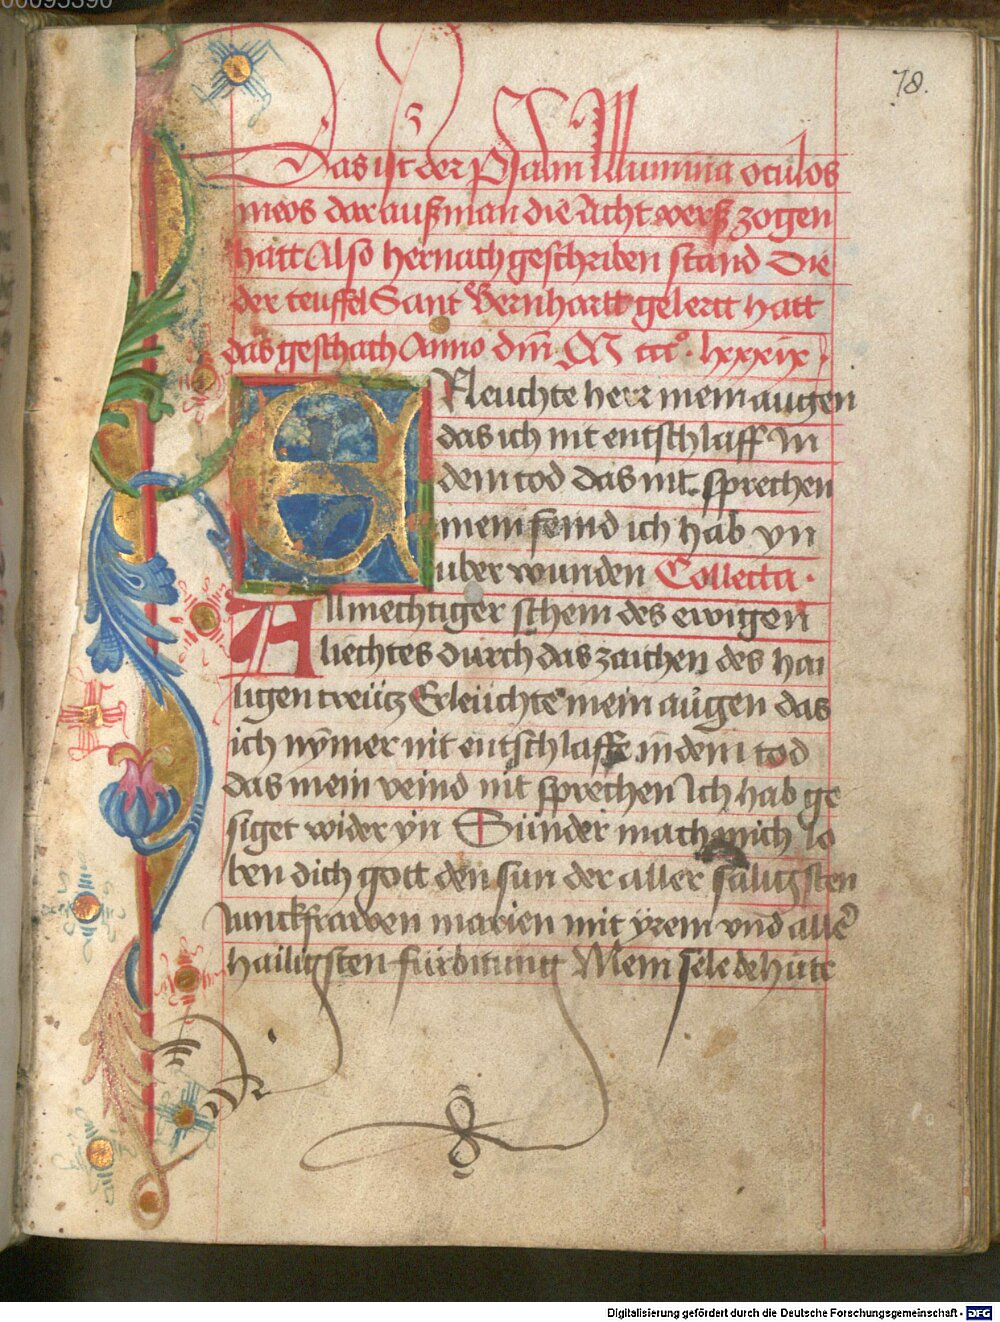 00095390
78.
Das ist der Psalm Illumina oculos
meos daraußman die Acht verß zogen
hatt Also hernach geschriben stand Die
der teuffel Sant Bernhartt gelertt hatt
das geschach Anno dm̄ M ccc°. lxxxix.
ERleuchte herr mein augen
das ich nit entschlaff In
dem tod das nit sprechen
mein feind ich hab yn
uber wunden Collecta.
Allmechtiger schein des ewigen
liechtes durch das zaichen des hai
ligen creütz Erleüchte mein augen das
ich nȳmer nit entschlaffe in dem tod
das mein veind nit sprechen Ich hab ge
siget wider yn Sünder mach mich lo
ben dich gott den sun der aller säligsten
Junckfrawen marien mit yrem vnd allē
hailigsten fürbitung Mein sele behüte
Digitalisierung gefördert durch die Deutsche Forschungsgemeinschaft - DFG